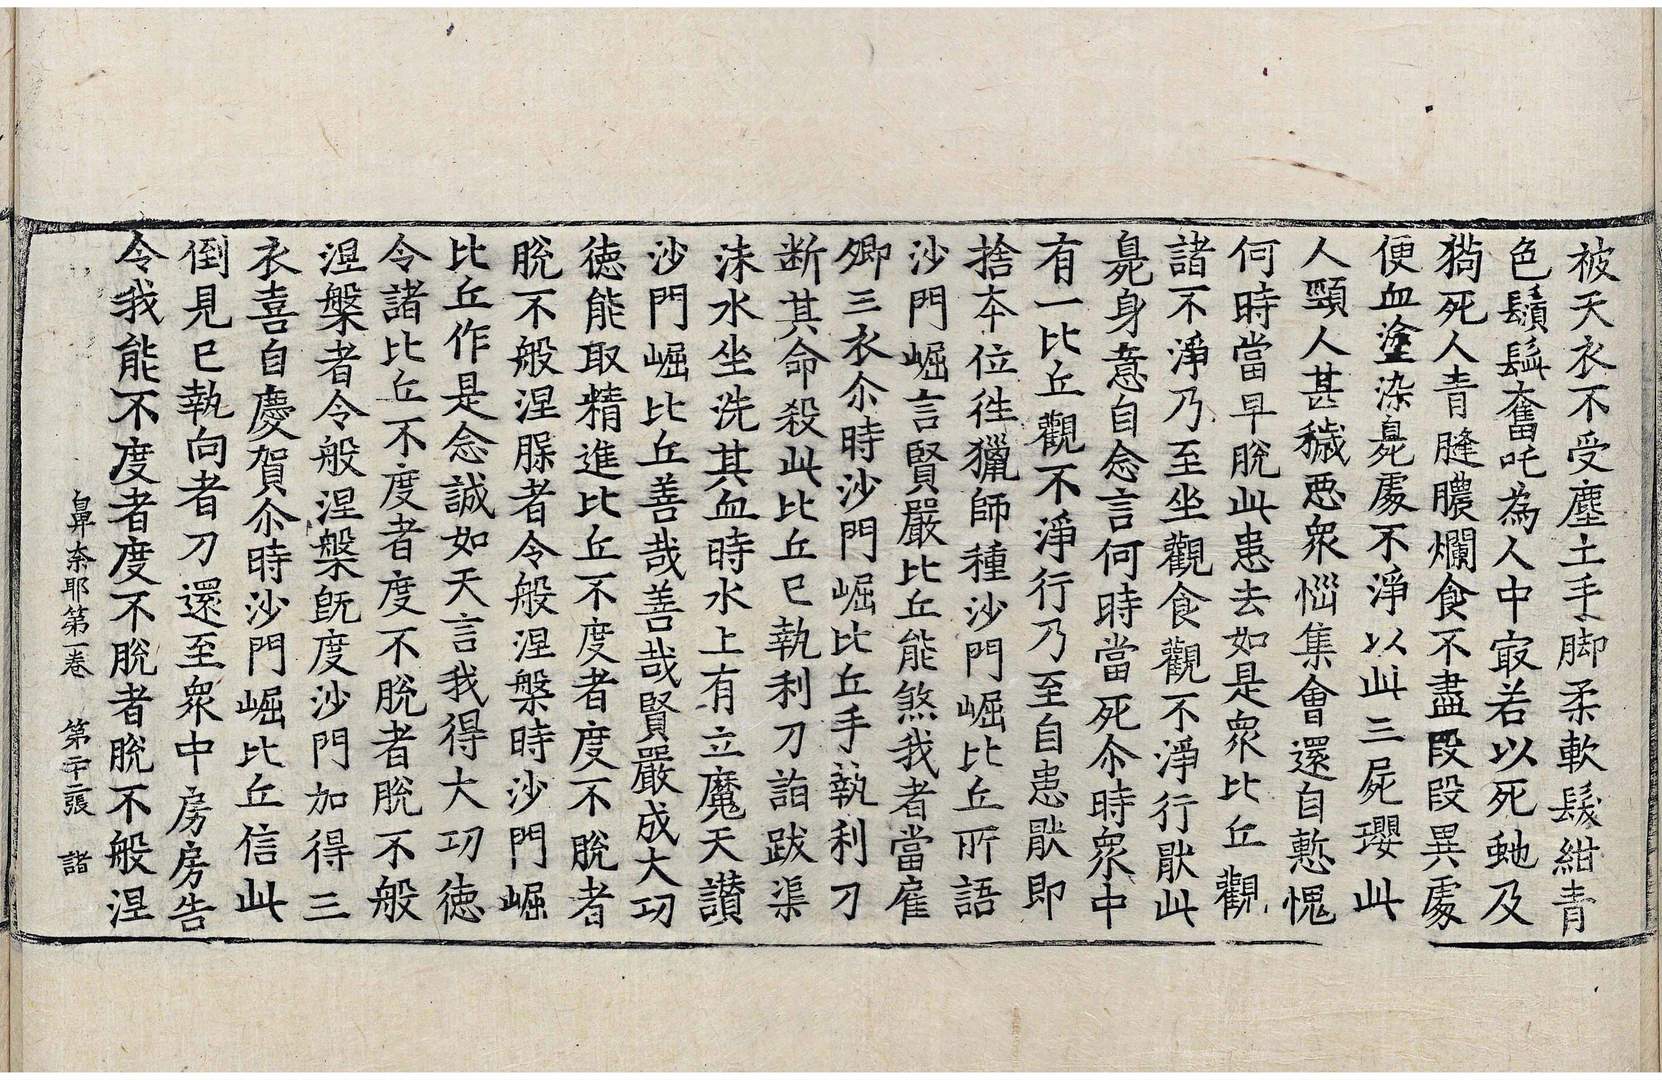 被天衣不受塵土手脚柔軟髮紺青
色鬚髯奮吒為人中㝡若以死虵及
猗死人青膖膿爛食不盡段段異處
便血塗染臰處不淨以此三屍瓔此
人頸人甚穢惡衆惱集會還自慙愧
何時當早脫此患去如是衆比丘觀
諸不淨乃至坐觀食觀不淨行猒此
臰身意自念言何時當死尒時衆中
有一比丘觀不淨行乃至自患猒即
捨本位徃獵師種沙門崛比丘所語
沙門崛言賢嚴比丘能煞我者當雇
卿三衣尒時沙門崛比丘手執利刀
断其命殺此比丘已執利刀詣跋渠
沫水坐洗其血時水上有立魔天讃
沙門崛比丘善哉善哉賢嚴成大功
徳能取精進比丘不度者度不脫者
脫不般涅腺者令般涅槃時沙門崛
比丘作是念誠如天言我得大功徳
令諸比丘不度者度不脫者脫不般
涅槃者令般涅槃旣度沙門加得三
衣喜自慶賀尒時沙門崛比丘信此
倒見已執向者刀還至衆中房房告
令我能不度者度不脫者脫不般涅
鼻奈耶第一卷 第二十二張 諧